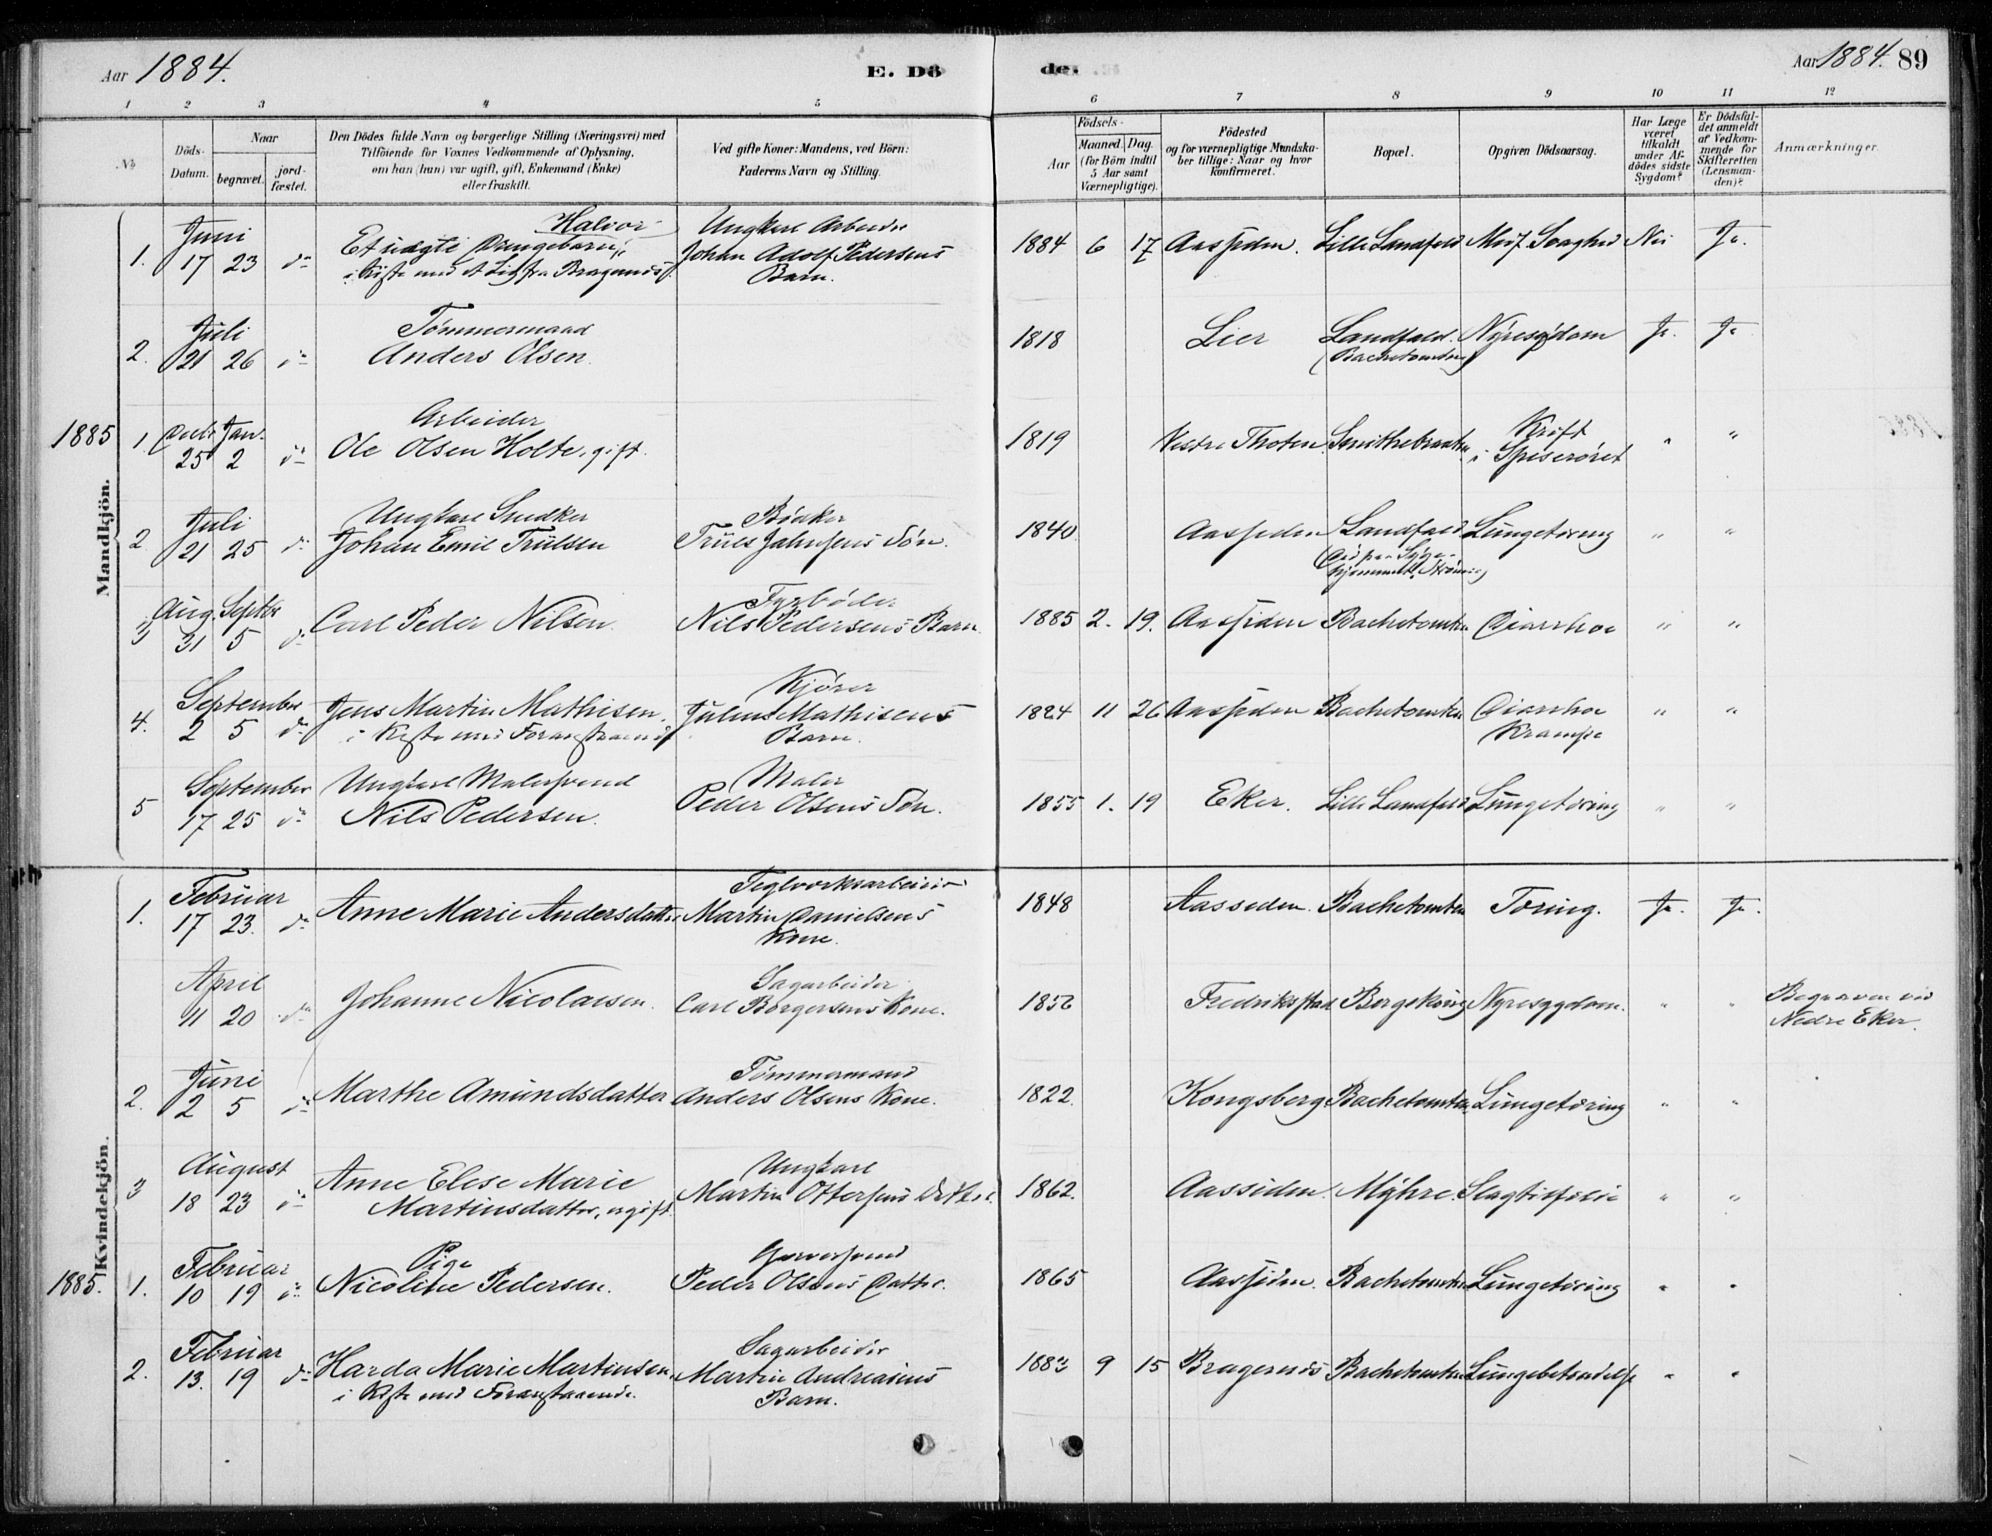 Aar 1884.
E. Döde.
Aar 1884. 89
1 2 3 4 5 6 7 8 9 10 11 12
No
Döds-Datum.
Naar
begravet.
jord-fæstet.
Den Dödes fulde Navn og borgerlige Stilling (Næringsvei) med
Tilföiende for Voxnes Vedkommende af Oplysning,
om han (hun) var ugift, gift, Enkemand (Enke)
eller fraskilt.
Ved gifte Koner: Mandens, ved Börn:
Faderens Navn og Stilling.
Födsels-
Aar
Maaned. Dag.
(for Börn indtil
5 Aar samt
Værnepligtige).
Födested
og for værnepligtige Mandska-
ber tillige: Naar og hvor
konfirmeret.
Bopæl.
Opgiven Dödsaarsag.
Har Læge
været
tilkaldt
under Af-
dödes sidste
Sygdom?
Er Dödsfal-
det anmeldt
af Vedkom-
mende for
Skifteretten
(Lensman-
den)?
Anmærkninger.
Mandkjön.
Juni Halvor Ungkarl Arbeider
1. 17 23 do Et uægte Drengebarn, Johan Adolf Pedersens 1884 6 17 Aassiden. Lille Landfald Nei Ja.
i Kiste med et Lig fra Bragernæs. Barn.
Juli Tømmermand
2. 21 26 do Anders Olsen. 1818 Lier Landfald. Nyresygdom Ja. Ja
(Bachetomten)
1885 1. Decbr Jan. Arbeider
25 2 do Ole Olsen Holte, gift. 1819 Vestre Thoten. Kræft
i Spiserøret " "
Juli Ungkarl Snedker Bødker
2 21 25 do Johan Emil Trulsen Truls Jahnsens Søn. 1840. Aassiden Landfald Lungetæring " "
Aug. Septbr Fyrbøder
3 31 5 do Carl Peder Nilsen. Nils Pedersens Barn. 1885 2. 19. Aassiden Bachetomten Diarrhoe " "
September Kjører
4. 2 5 do Jens Martin Mathisen, Julius Mathisens 1884 11 26 Aassiden Bachetomten Diarrhoe " "
i Kiste med Foranstaaende Barn. Krampe
September Ungkarl Malersvend Maler
5 17 25 do Nils Pedersen. Peder Olsens Søn. 1855 1. 19 Eker. Lille Landfald Lungetæring " "
Kvindekjön.
Februar Teglværksarbeider
1. 17 23. do Anne Marie Andersdatter Martin Danielsens 1848 Aassiden. Bachetomten Tæring. Ja. Ja.
Kone.
April Sagarbeider
11 20 do Johanne Nicolaisen. Carl Borgersens Kone. 1856 Fredriksstad Nyresygdom. " " Begraven ved
Nedre Eker.
Juni Tømmermand
2. 2 5 do Marthe Amundsdatter Anders Olsens Kone. 1822. Kongsberg Bachetomten Lungetæring " "
August Ungkarl
3 18 23 do Anne Elese Marie Martin Ottersens Datter. 1862. Aassiden. Myhre. Slagtilfælde " "
Martinsdatter, ugift.
Februar Pige Garversvend
1885. 1. 10 19 do Nicoline Pedersen. Peder Olsens Datter. 1865 Aassiden. Bachetomten Lungetæring " "
Februar Sagarbeider
2. 13. 19 do Harda Marie Martinsen, Martin Andreasens 1883 9 15 Bragernæs Bachetomten Lungebetændelse " "
i Kiste med Foranstaaende. Barn.